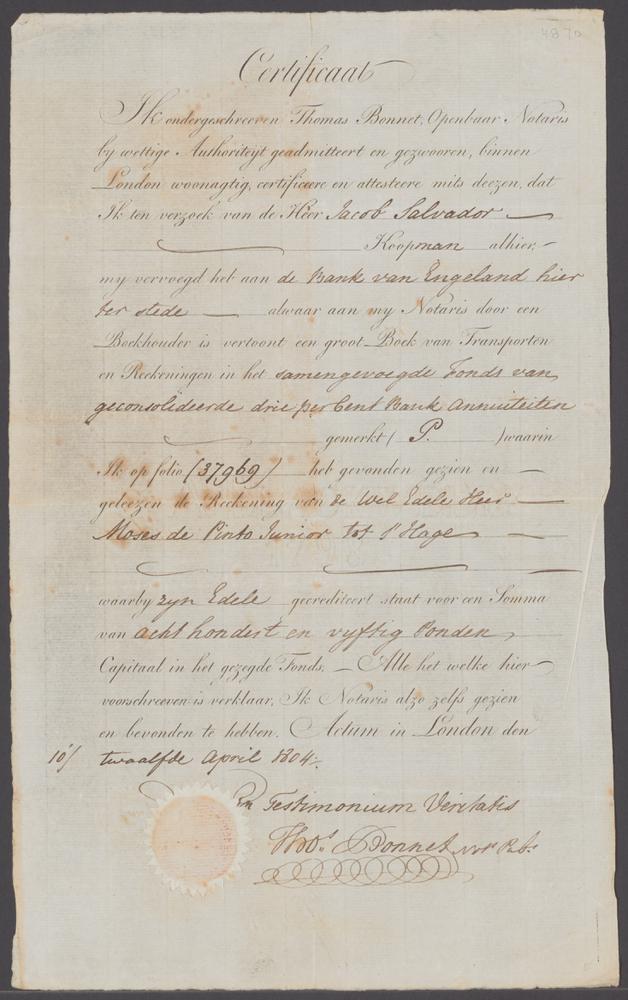 4870
Certificaat
Ik ondergeschreeven Thomas Bonnet, Openbaar Notaris
by wettige Authoriteyt geadmitteert en gezwooren, binnen
London woonagtig, certificeere en attesteere mits deezen, dat
Ik ten verzoek van de Heer Jacob Salvador
Koopman alhier,
my vervoegd heb aan de Bank van Engeland hier
ter stede alwaar aan my Notaris door een
Boekhouder is vertoont een groot-Boek van Transporten
en Reekeningen in het samengevoegde Fonds van
geconsolideerde drie per Cent Bank Annuiteiten
gemerkt ( P. ) waarin
Ik op folio (37969) heb gevonden gezien en
geleezen de Reekening van de Wel Edele Heer
Moses de Pinto Junior tot s'Hage
waarby zyn Edele gecrediteert staat voor een Somma
van acht hondert en vyftig Ponden
Capitaal in het gezegde Fonds. Alle het welke hier
voorschreeven is verklaar, Ik Notaris alzo zelfs gezien
en bevonden te hebben. Actum in London den
10/ twaalfde April 1804.
In Testimonium Veritatis
Thos. Bonnet Not. Pub.